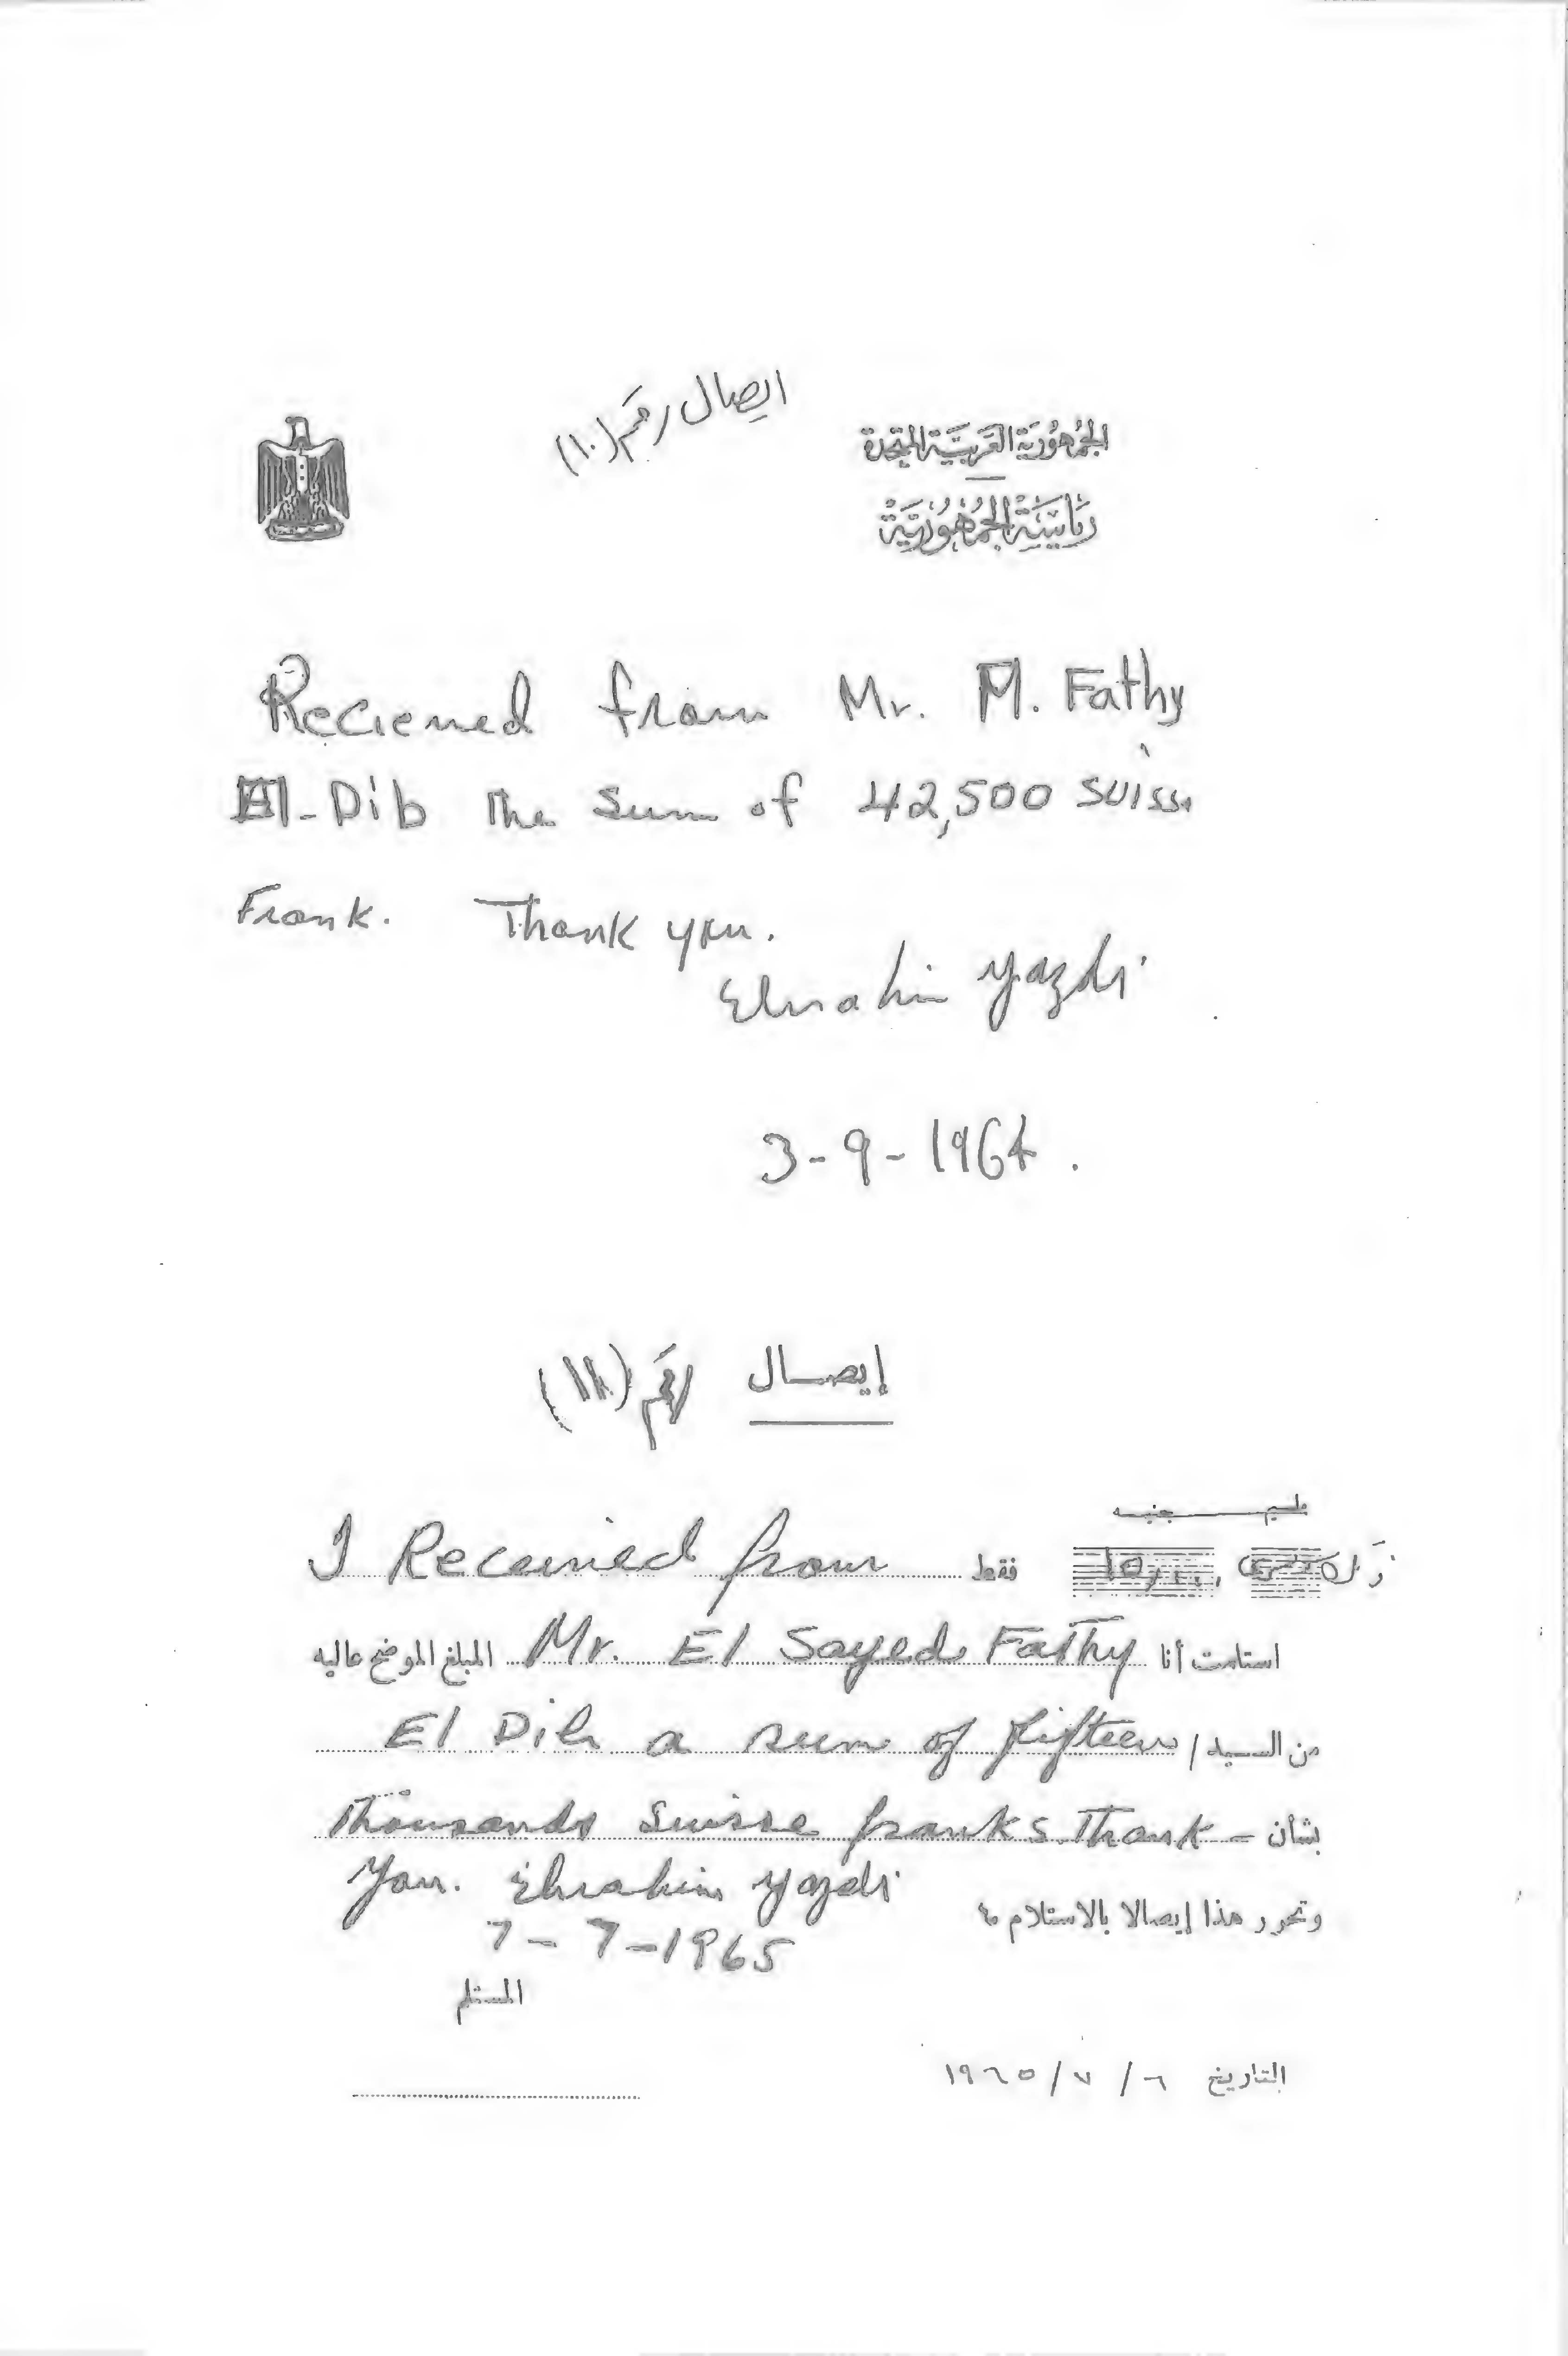 ايصال رقم (١٠)
الجمهورية العربية المتحدة
رئاسة الجمهورية
Recieved from Mr. M. Fathy
El-Dib the sum of 42,500 suisse
Frank. Thank you.
Ebrahim Yazdi
3-9-1964.
إيصال رقم (١١)
مليم جنيه
I Received from فقط ١٥,٠٠٠
استلمت أنا Mr. El Sayed Fathy المبلغ الموضح عاليه
من السيد / El Dib a sum of fifteen
بشأن Thousands Suisse franks. Thank -
you. Ebrahim Yazdi
وتحرر هذا إيصالا بالاستلام ،
7-7-1965
المستلم
التاريخ ٦ / ٧ / ١٩٦٥